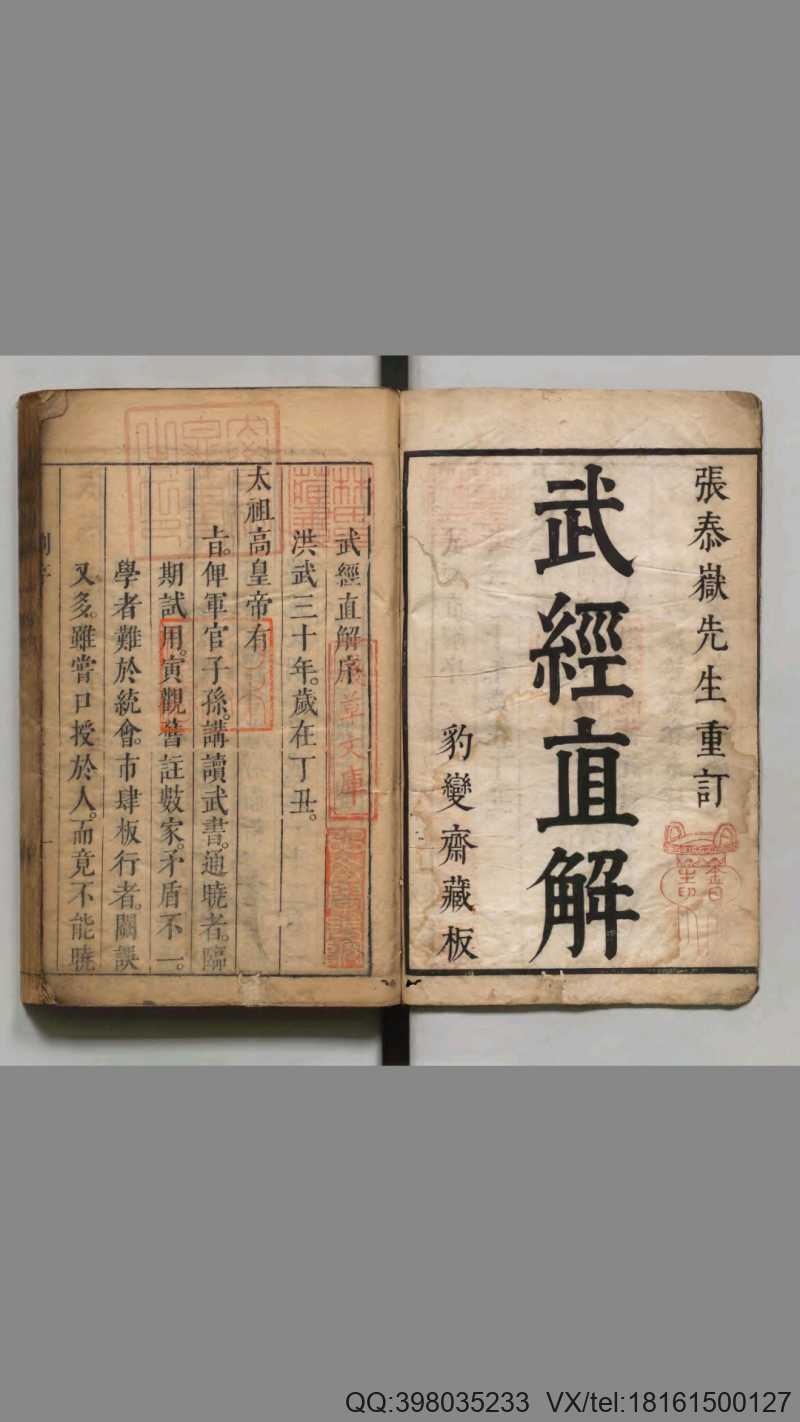 張泰嶽先生重訂
武經直解
豹變齋藏板
武經直解序
洪武三十年。歲在丁丑。
太祖高皇帝有
旨。俾軍官子孫。講讀武書。通曉者。臨
期試用。寅觀舊註數家。矛盾不一。
學者難於統會。市肆板行者。闕誤
又多。雖嘗口授於人。而竟不能曉
草文庫
QQ:398035233 VX/tel:18161500127